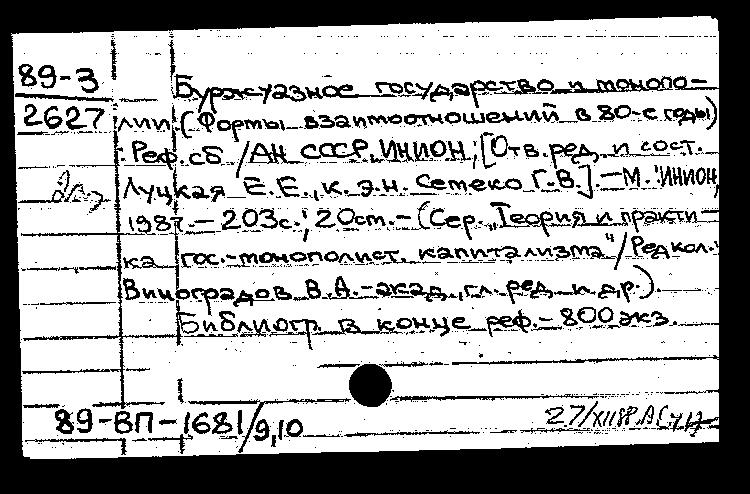 89-3
2627
Буржуазное государство и монопо-
лии: (Формы взаимоотношений в 80-е годы)
: Реф. сб / АН СССР, ИНИОН; [Отв. ред. и сост.
Луцкая Е.Е., к.э.н. Семеко Г.В.]. - М.: ИНИОН,
1987. - 203с.; 20см. - (Сер. "Теория и практи-
ка гос.-монополист. капитализма" / Редкол.:
Виноградов В.А. - акад., гл. ред. и др.).
Библиогр. в конце реф. - 800 экз.
89-ВП-1681/9,10
27/XII88.